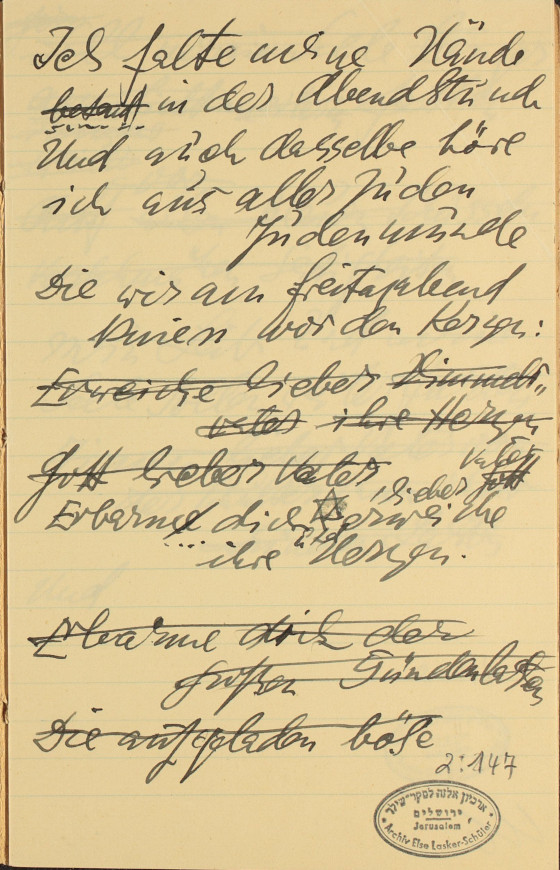 Ich falte meine Hände
in der Abendstunde
Und auch dasselbe höre
ich aus aller Juden
Judenmunde
Die wir am Freitagabend
Knien vor den Kerzen:
Erweiche lieber Himmels-
vater ihre Herzen
Gott lieber Vater
Vater
lieber Gott
Erbarme dich erweiche
ihre Herzen.
Erbarme dich der
großen Sündenlasten
Die aufgeladen böse
2:147
ארכיון אלזה לסקר-שילר
ירושלים
Jerusalem
Archiv Else Lasker-Schüler